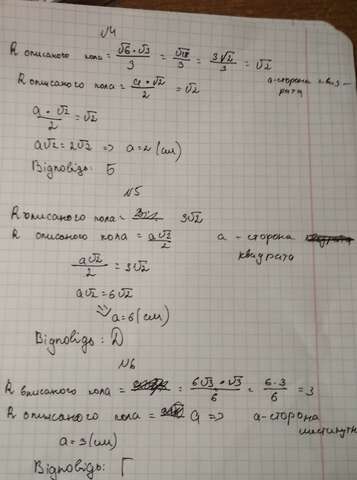 №4
R описаного кола = √6 · √3 / 3 = √18 / 3 = 3√2 / 3 = √2
R описаного кола = a · √2 / 2 = √2 а-сторона квад-
рата
a · √2 / 2 = √2
a√2 = 2√2 => a = 2 (см)
Відповідь: Б
№5
R описаного кола = 3√2
R описаного кола = a√2 / 2 а - сторона
квадрата
a√2 / 2 = 3√2
a√2 = 6√2
=> a = 6 (см)
Відповідь: Д
№6
R вписаного кола = 6√3 · √3 / 6 = 6 · 3 / 6 = 3
R описаного кола = a => а-сторона
a = 3 (см)
Відповідь: Г